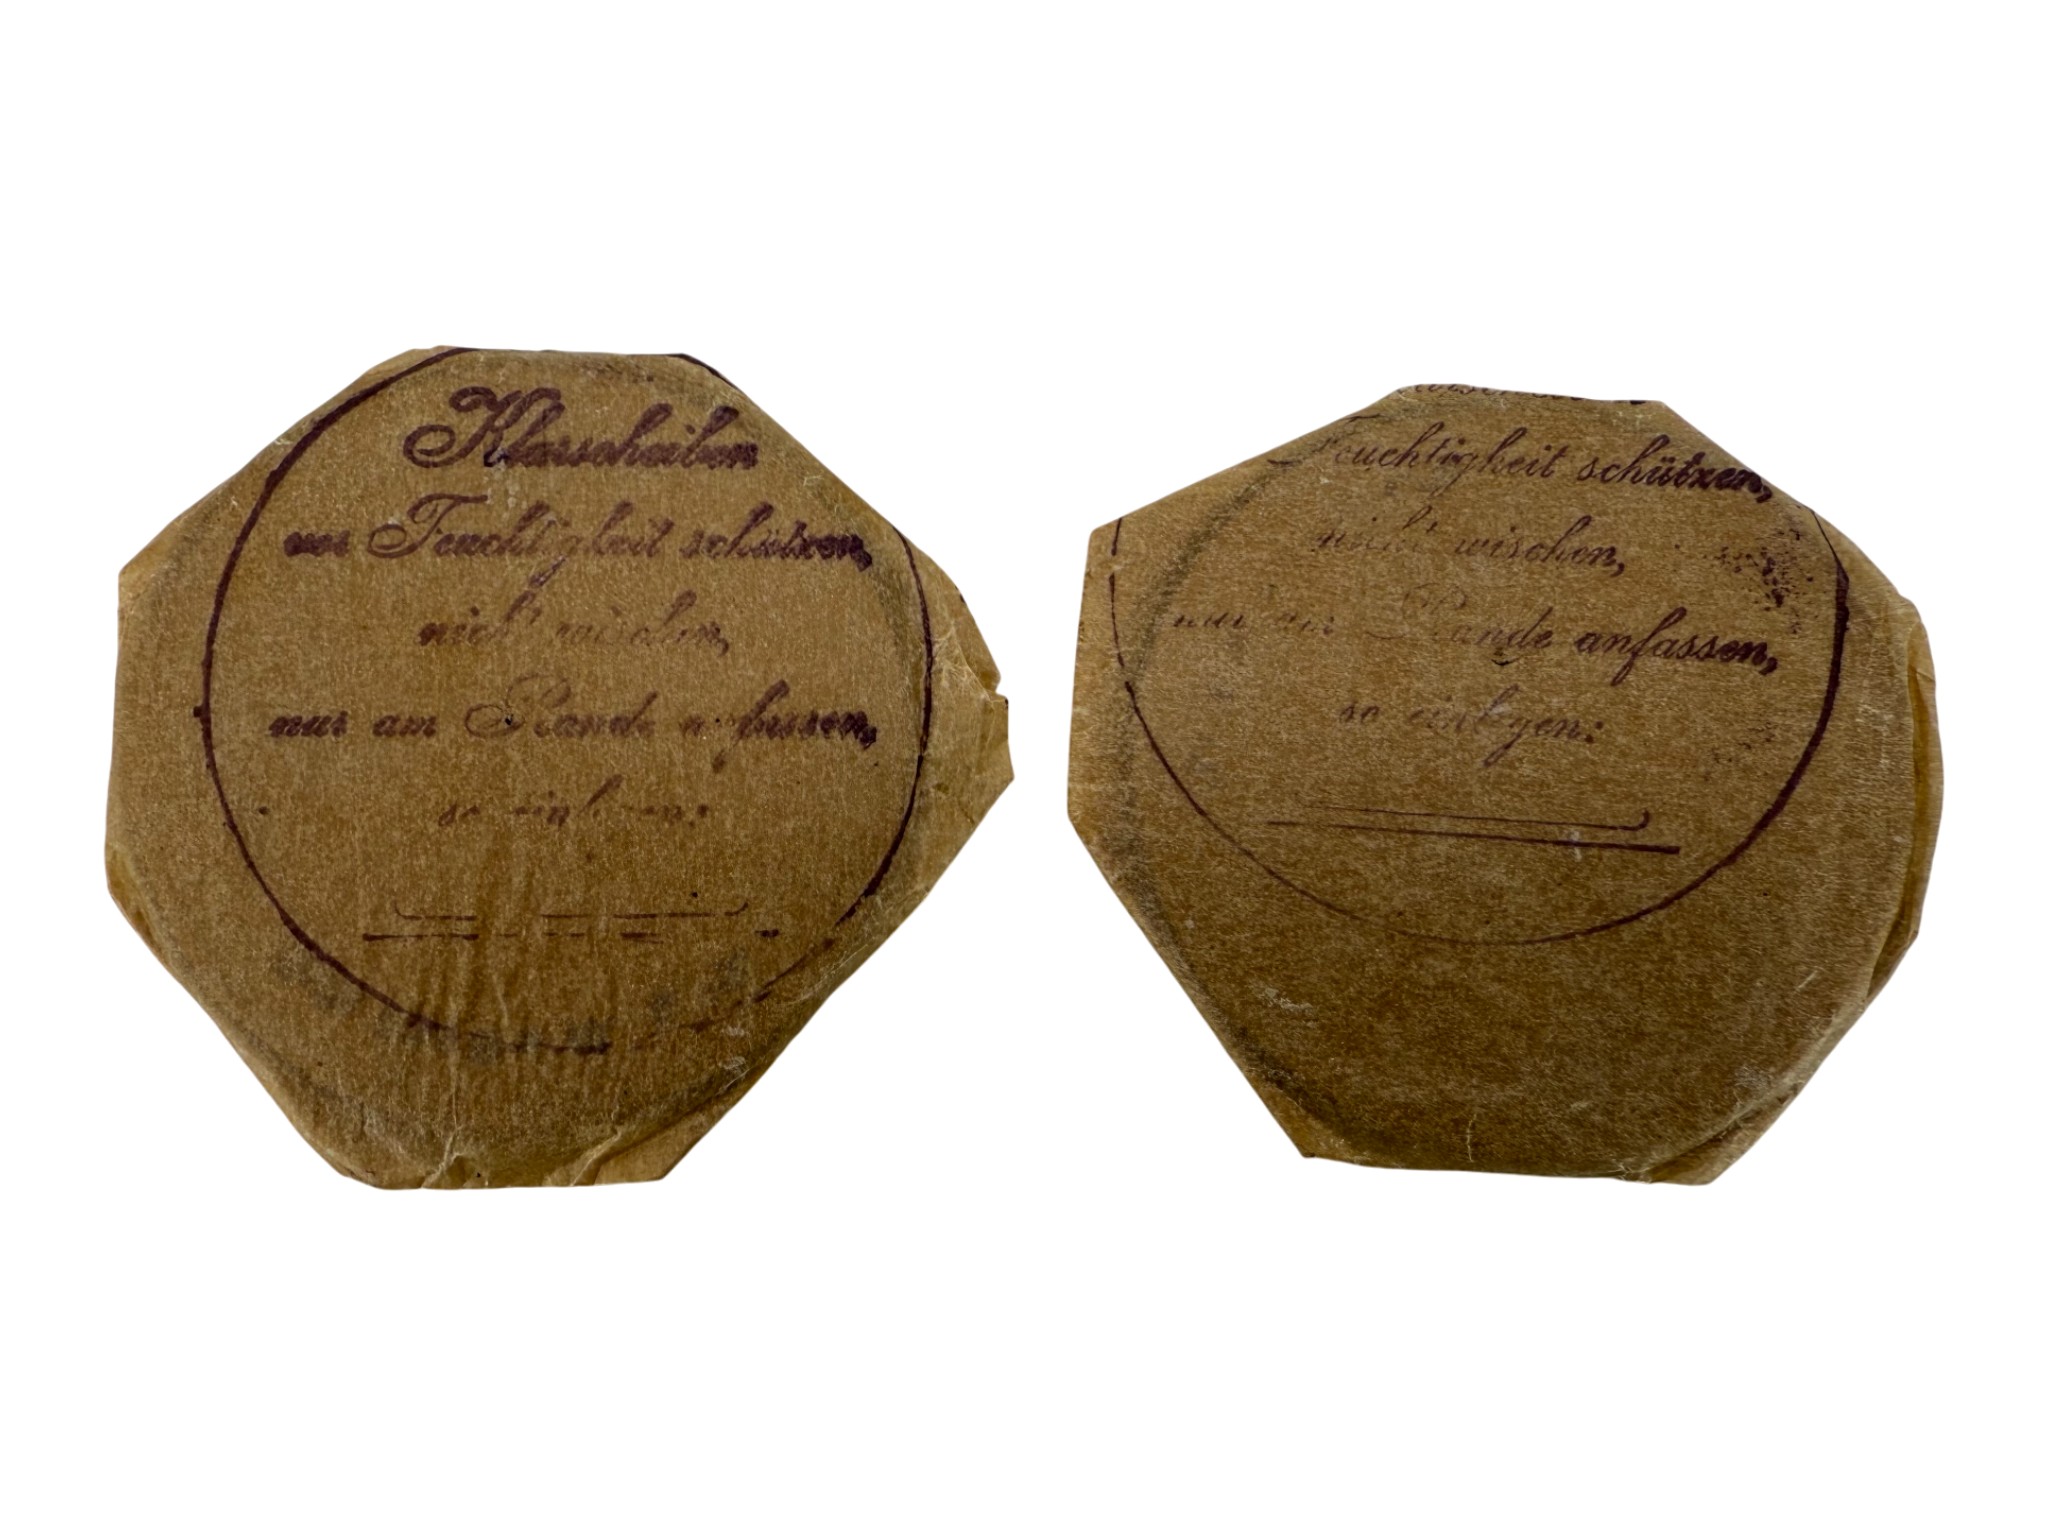 Klarscheiben
vor Feuchtigkeit schützen,
nicht wischen,
nur am Rande anfassen,
so einlegen:
Feuchtigkeit schützen,
nicht wischen,
nur am Rande anfassen,
so einlegen: